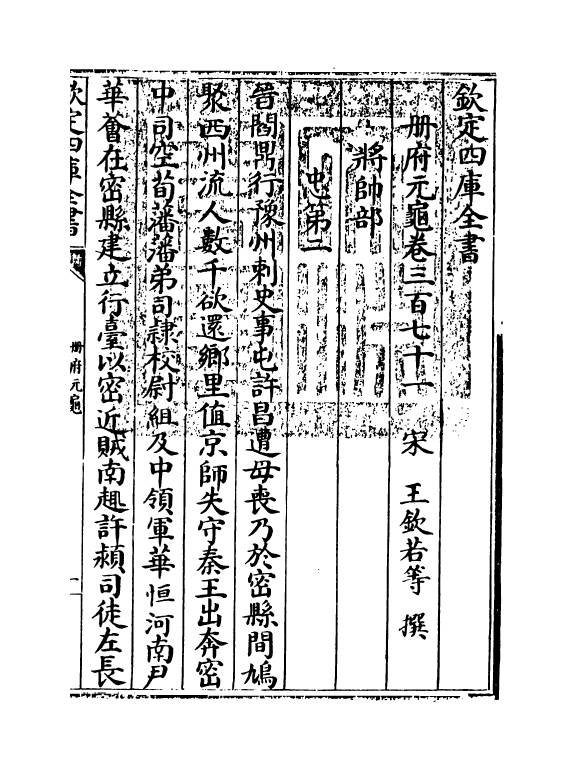 欽定四庫全書
册府元龜卷三百七十一　宋　王欽若等　撰
將帥部
忠第二
晉閻鼎行豫州刺史事屯許昌遭母喪乃於密縣間鳩
聚西州流人數千欲還鄉里值京師失守秦王出奔密
中司空荀藩藩弟司隷校尉組及中領軍華恒河南尹
華薈在密縣建立行臺以密近賊南趣許潁司徒左長
欽定四庫全書
册府元龜
一